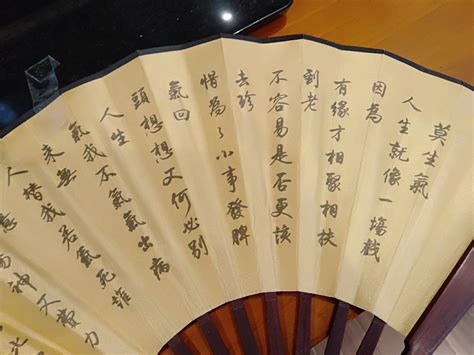 莫生氣
人生就像一場戲
因為
有緣才相聚相扶
到老
不容易是否更該
去珍
惜為了小事發脾
氣回
頭想想又何必別
人生
氣我不氣氣出病
來無
人替我若氣死誰
意傷神又費力